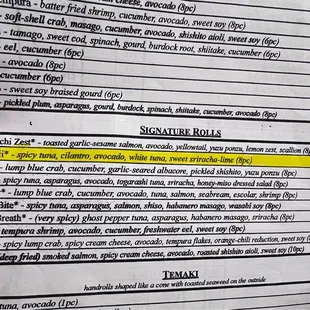 - batter fried shrimp, cucumber, avocado, sweet soy (8pc)
avocado (8pc)
- soft-shell crab, masago, cucumber, avocado, shishito aioli, sweet soy (6pc)
- tamago, sweet cod, spinach, gourd, burdock root, shiitake, cucumber (6pc)
- eel, cucumber (6pc)
- avocado (8pc)
cucumber (6pc)
- sweet soy braised gourd (6pc)
- pickled plum, asparagus, gourd, burdock, spinach, shiitake, cucumber, avocado (8pc)
SIGNATURE ROLLS
chi Zest* - toasted garlic-sesame salmon, avocado, yellowtail, yuzu ponzu, lemon zest, scallion (8
i* - spicy tuna, cilantro, avocado, white tuna, sweet sriracha-lime (8pc)
- lump blue crab, cucumber, garlic-seared albacore, pickled shishito, yuzu ponzu (8pc)
- spicy tuna, asparagus, avocado, togarashi tuna, sriracha, honey-miso dressed salad (8pc)
* - lump blue crab, cucumber, avocado, tuna, salmon, seabream, escolar, shrimp (8pc)
Bite* - spicy tuna, asparagus, salmon, shiso, habanero masago, wasabi soy (8pc)
Breath* - (very spicy) ghost pepper tuna, asparagus, habanero masago, sriracha (8pc)
- tempura shrimp, avocado, cucumber, freshwater eel, sweet soy (8pc)
- spicy lump crab, spicy cream cheese, avocado, tempura flakes, orange-chili reduction, sweet soy
(deep fried) smoked salmon, spicy cream cheese, avocado, roasted shishito aioli, sweet soy (10pc)
TEMAKI
handrolls shaped like a cone with toasted seaweed on the outside
tuna, avocado (1pc)